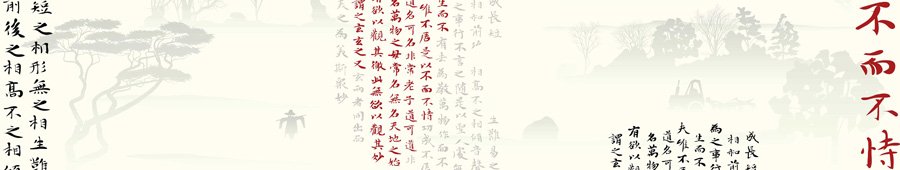 不而不恃
成長短
相和前
為之事行
生而不
夫唯不
道名可
名萬物
有欲以觀
謂之玄
成長短 生難易之
相和前功 相高不之相傾音聲
為之事行不言之随是以聖人後無
生而不有去為萬物作而不
夫唯不居是以不而不恃功成不居
道名可名非常老子道可道非
名萬物之母常名無名天地之始
有欲以觀其徼此無欲以觀其妙
謂之玄玄之又玄而者同出而
天之為美斯妙
短之相形無之相生難
前後之相高不之相傾